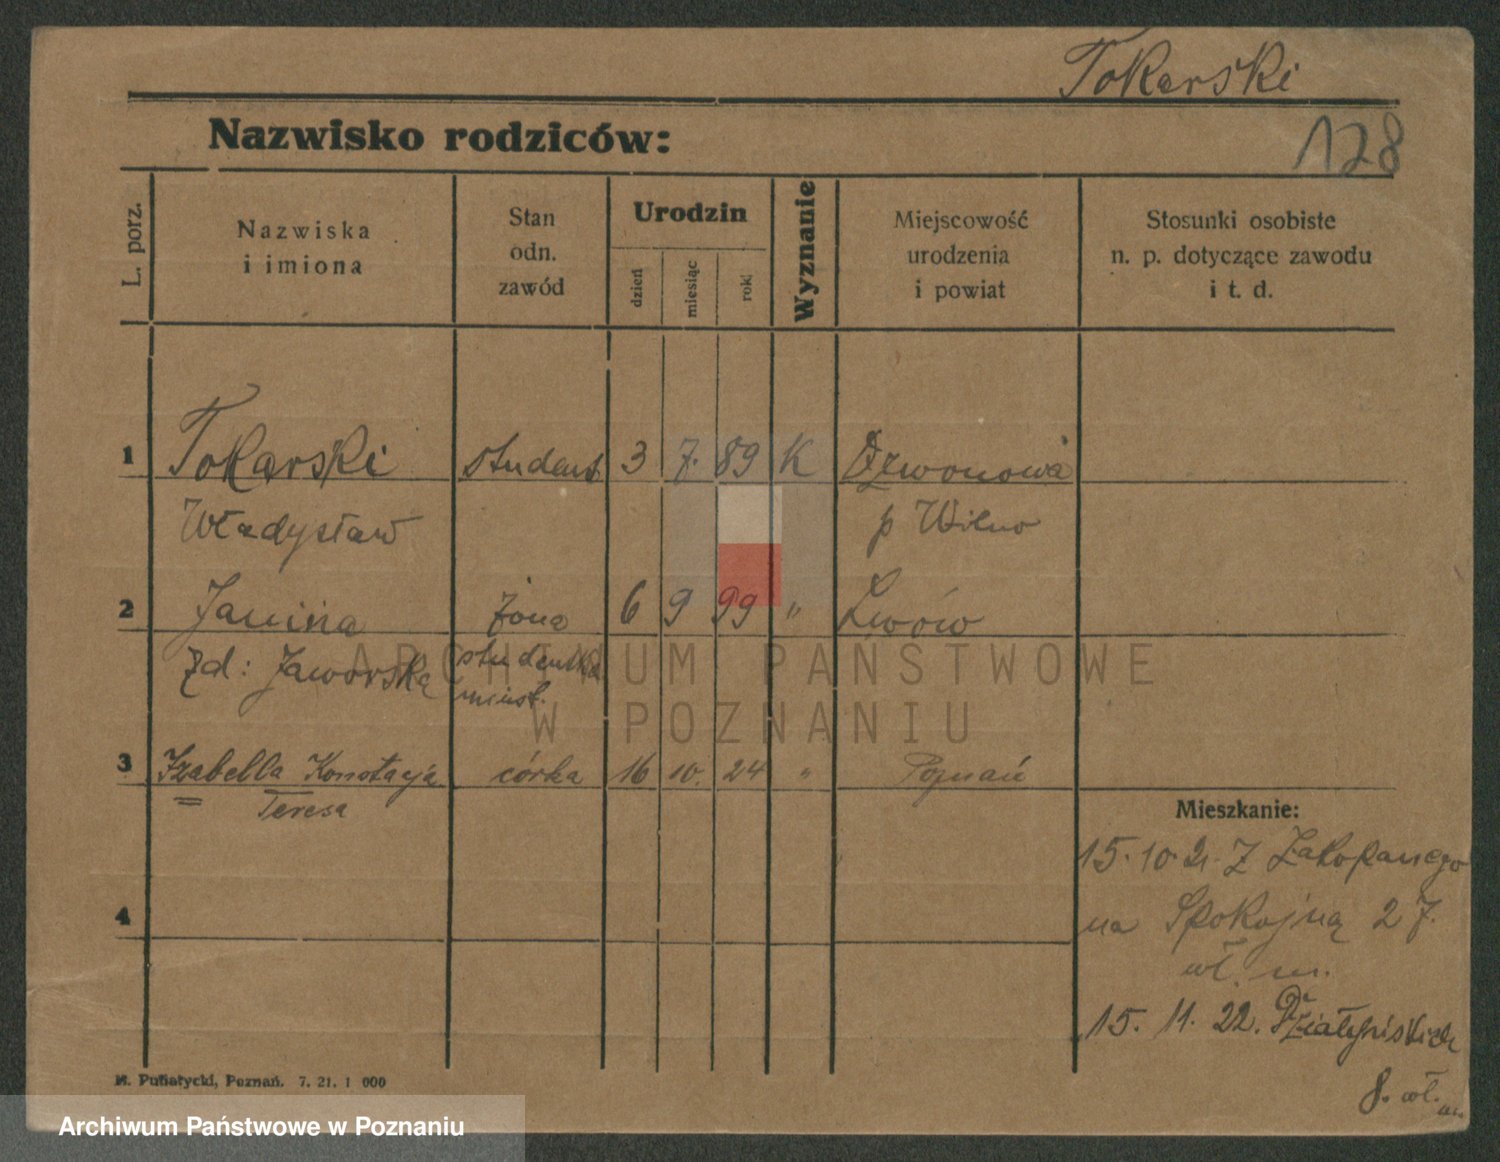 Tokarski
Nazwisko rodziców:
128
L. porz.
Nazwiska
i imiona
Stan
odn.
zawód
Urodzin
dzień
miesiąc
rok
Wyznanie
Miejscowość
urodzenia
i powiat
Stosunki osobiste
n. p. dotyczące zawodu
i t. d.
1 Tokarski student 3 7. 89 K Dzwonowa
Władysław p Wilno
2 Janina żona 6 9 99 " Lwów
zd: Jaworska studentka
ARCHIWUM PAŃSTWOWE
W POZNANIU
3 Izabella Konstacja córka 16 10. 24 " Poznań
Teresa
Mieszkanie:
15. 10. 21. Z Zakopanego
4
na Spokojną 27.
wł. m.
15. 11. 22. Działyńskich
8. wł. m.
M. Putiatycki, Poznań. 7. 21. 1 000
Archiwum Państwowe w Poznaniu